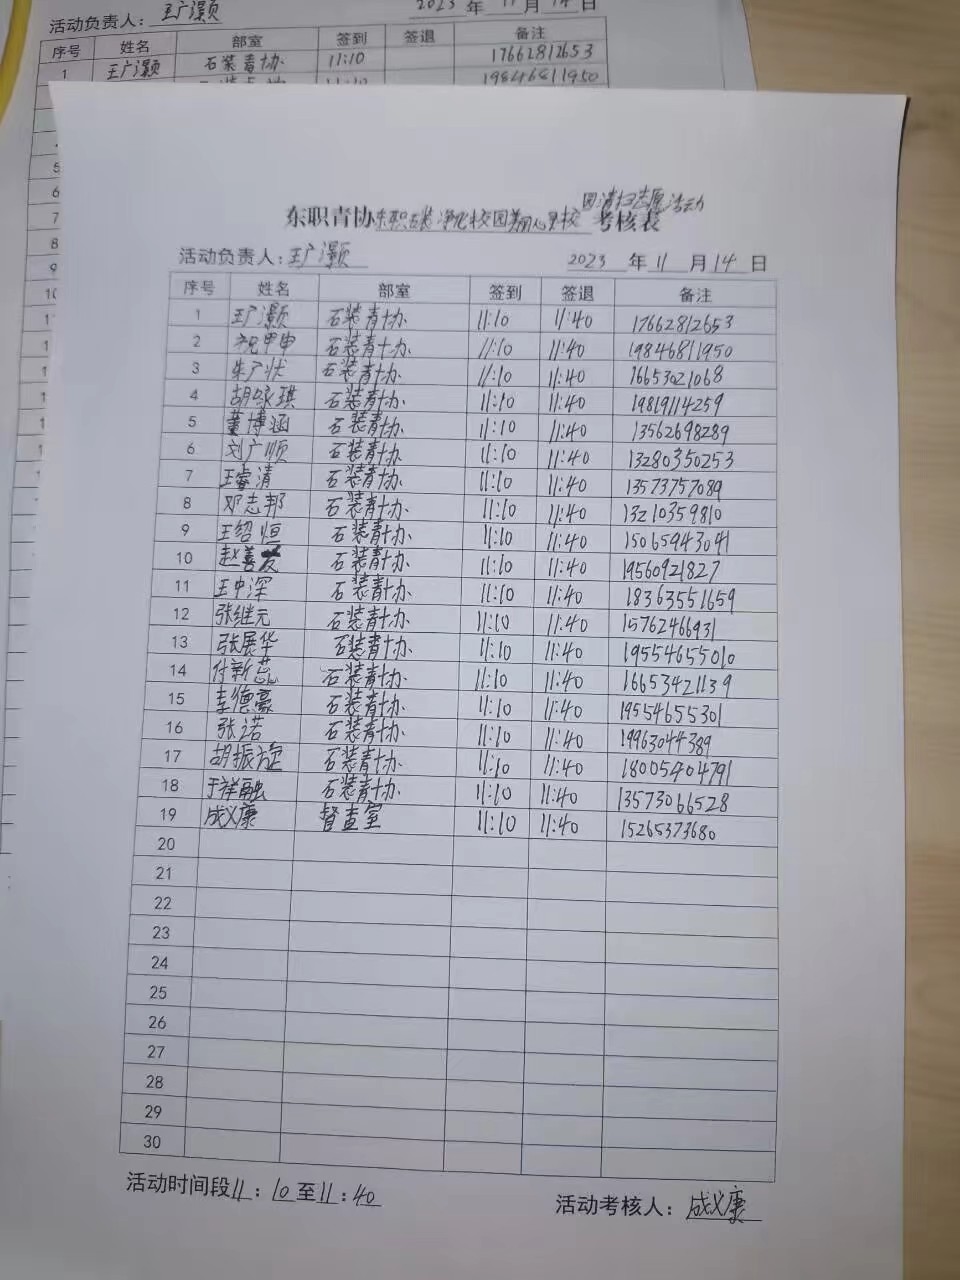 活动负责人：王广灏
2023 年 11 月 14 日
序号 姓名 部室 签到 签退 备注
1 王广灏 石装青协 11:10 17662812653
11:10 19846811950
5
6
7
8
9
园清扫志愿活动
东职青协东职石装净化校园美丽心灵校考核表
活动负责人：王广灏 2023 年 11 月 14 日
序号 姓名 部室 签到 签退 备注
1 王广灏 石装青协 11:10 11:40 17662812653
2 祝甲申 石装青协 11:10 11:40 19846811950
3 朱广状 石装青协 11:10 11:40 16653021068
4 胡咏琪 石装青协 11:10 11:40 19819114259
5 董博涵 石装青协 11:10 11:40 13562698289
6 刘广顺 石装青协 11:10 11:40 13280350253
7 王睿清 石装青协 11:10 11:40 13573757089
8 邓志邦 石装青协 11:10 11:40 13210359810
9 王绍恒 石装青协 11:10 11:40 15065943041
10 赵善 石装青协 11:10 11:40 19560921827
11 王中深 石装青协 11:10 11:40 18363551659
12 张继元 石装青协 11:10 11:40 15762466931
13 张展华 石装青协 11:10 11:40 19554655010
14 付新蕊 石装青协 11:10 11:40 16653421139
15 李德豪 石装青协 11:10 11:40 19554655301
16 张诺 石装青协 11:10 11:40 19963044389
17 胡振旋 石装青协 11:10 11:40 18005404791
18 于祥融 石装青协 11:10 11:40 13573066528
19 成义康 督查室 11:10 11:40 15265373680
20
21
22
23
24
25
26
27
28
29
30
活动时间段11：10至11：40 活动考核人：成义康